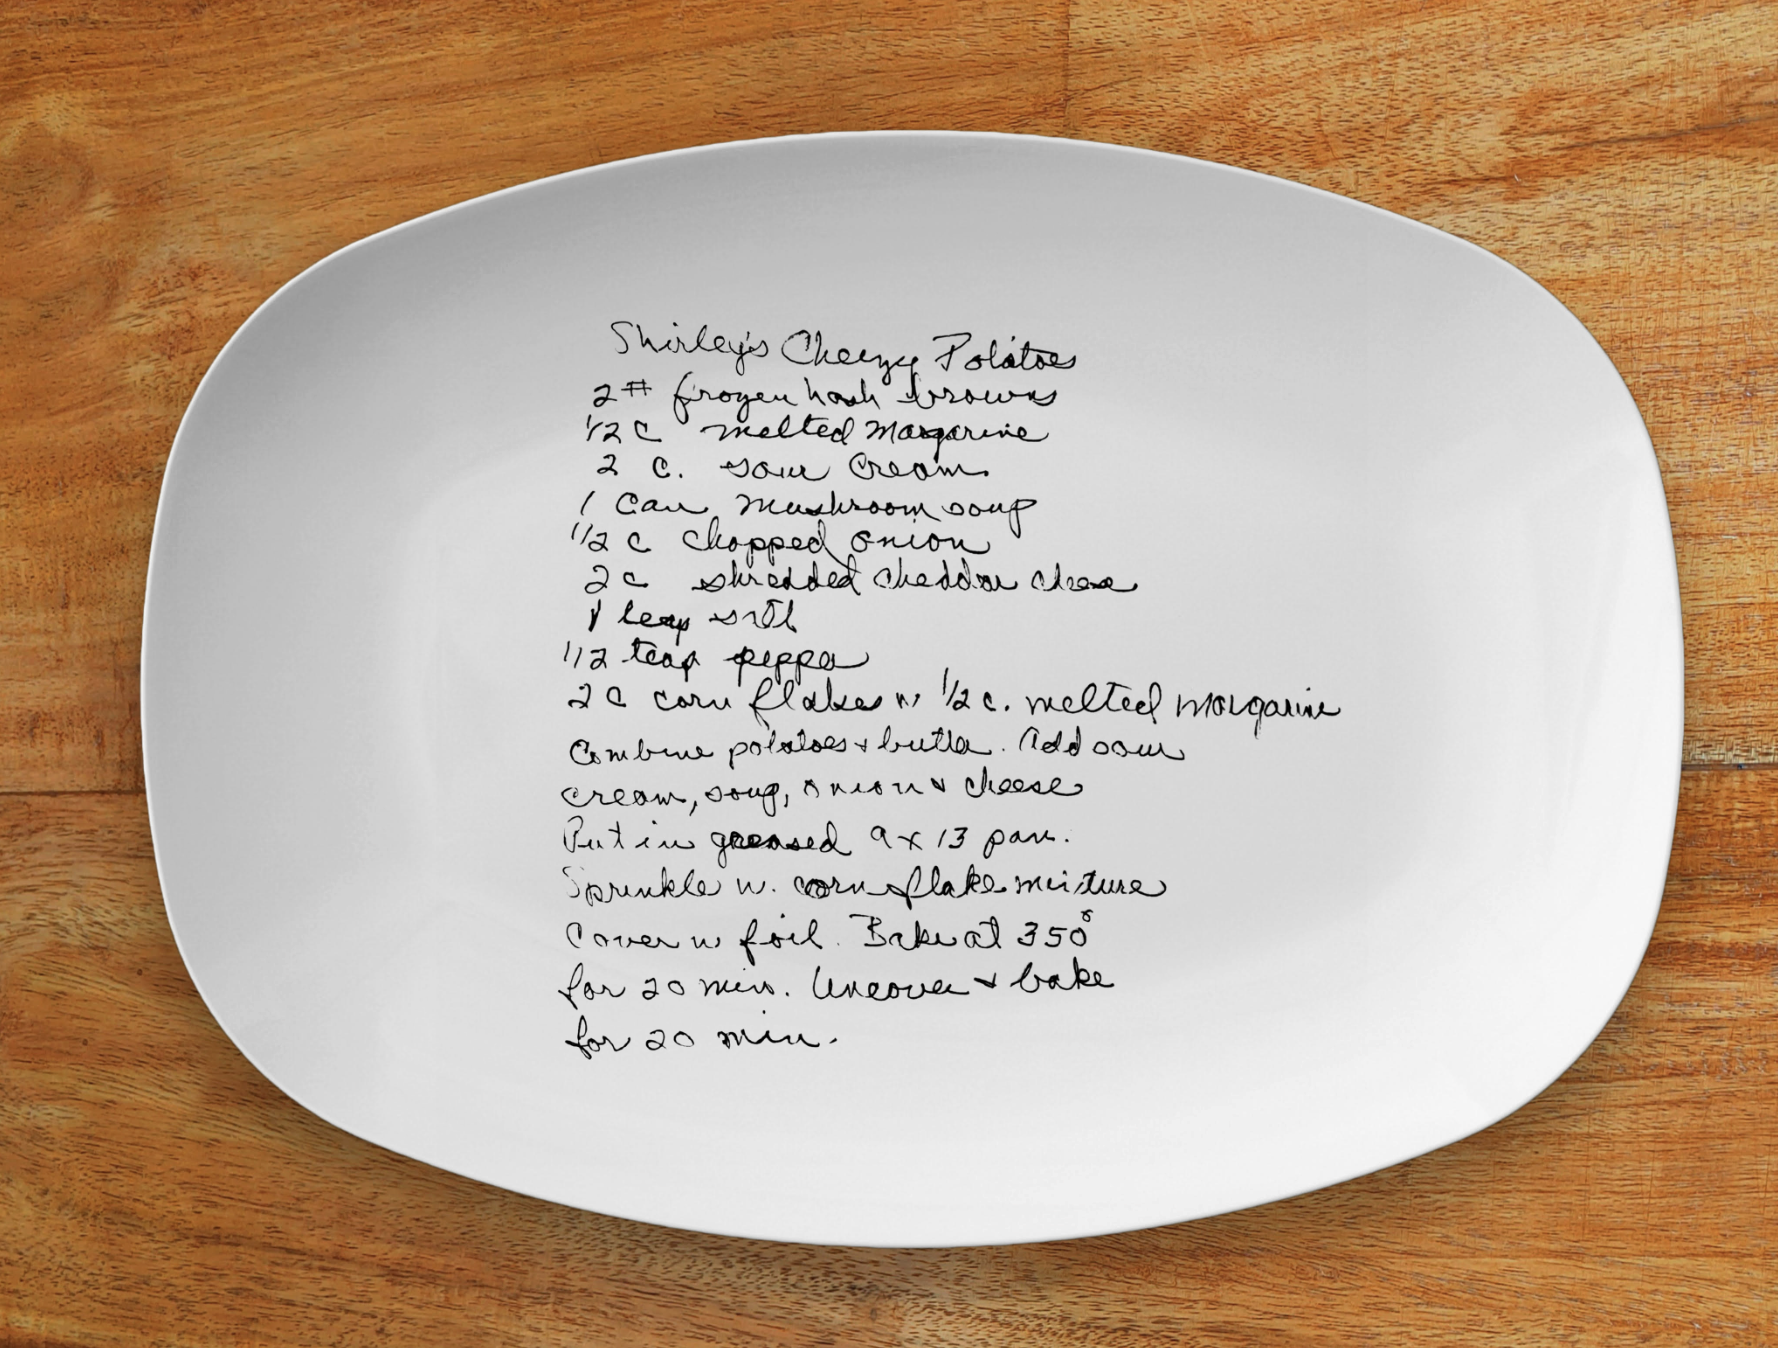 Shirley's Cheezy Potatoes
2# frozen hash browns
1/2 c melted margarine
2 c. sour cream
1 can mushroom soup
1/2 c chopped onion
2 c shredded cheddar cheese
1 teasp salt
1/2 teasp pepper
2 c corn flakes w 1/2 c. melted margarine
Combine potatoes & butter. Add sour
cream, soup, onion & cheese
Put in greased 9 x 13 pan.
Sprinkle w. corn flake mixture
Cover w foil. Bake at 350°
for 20 min. Uncover & bake
for 20 min.